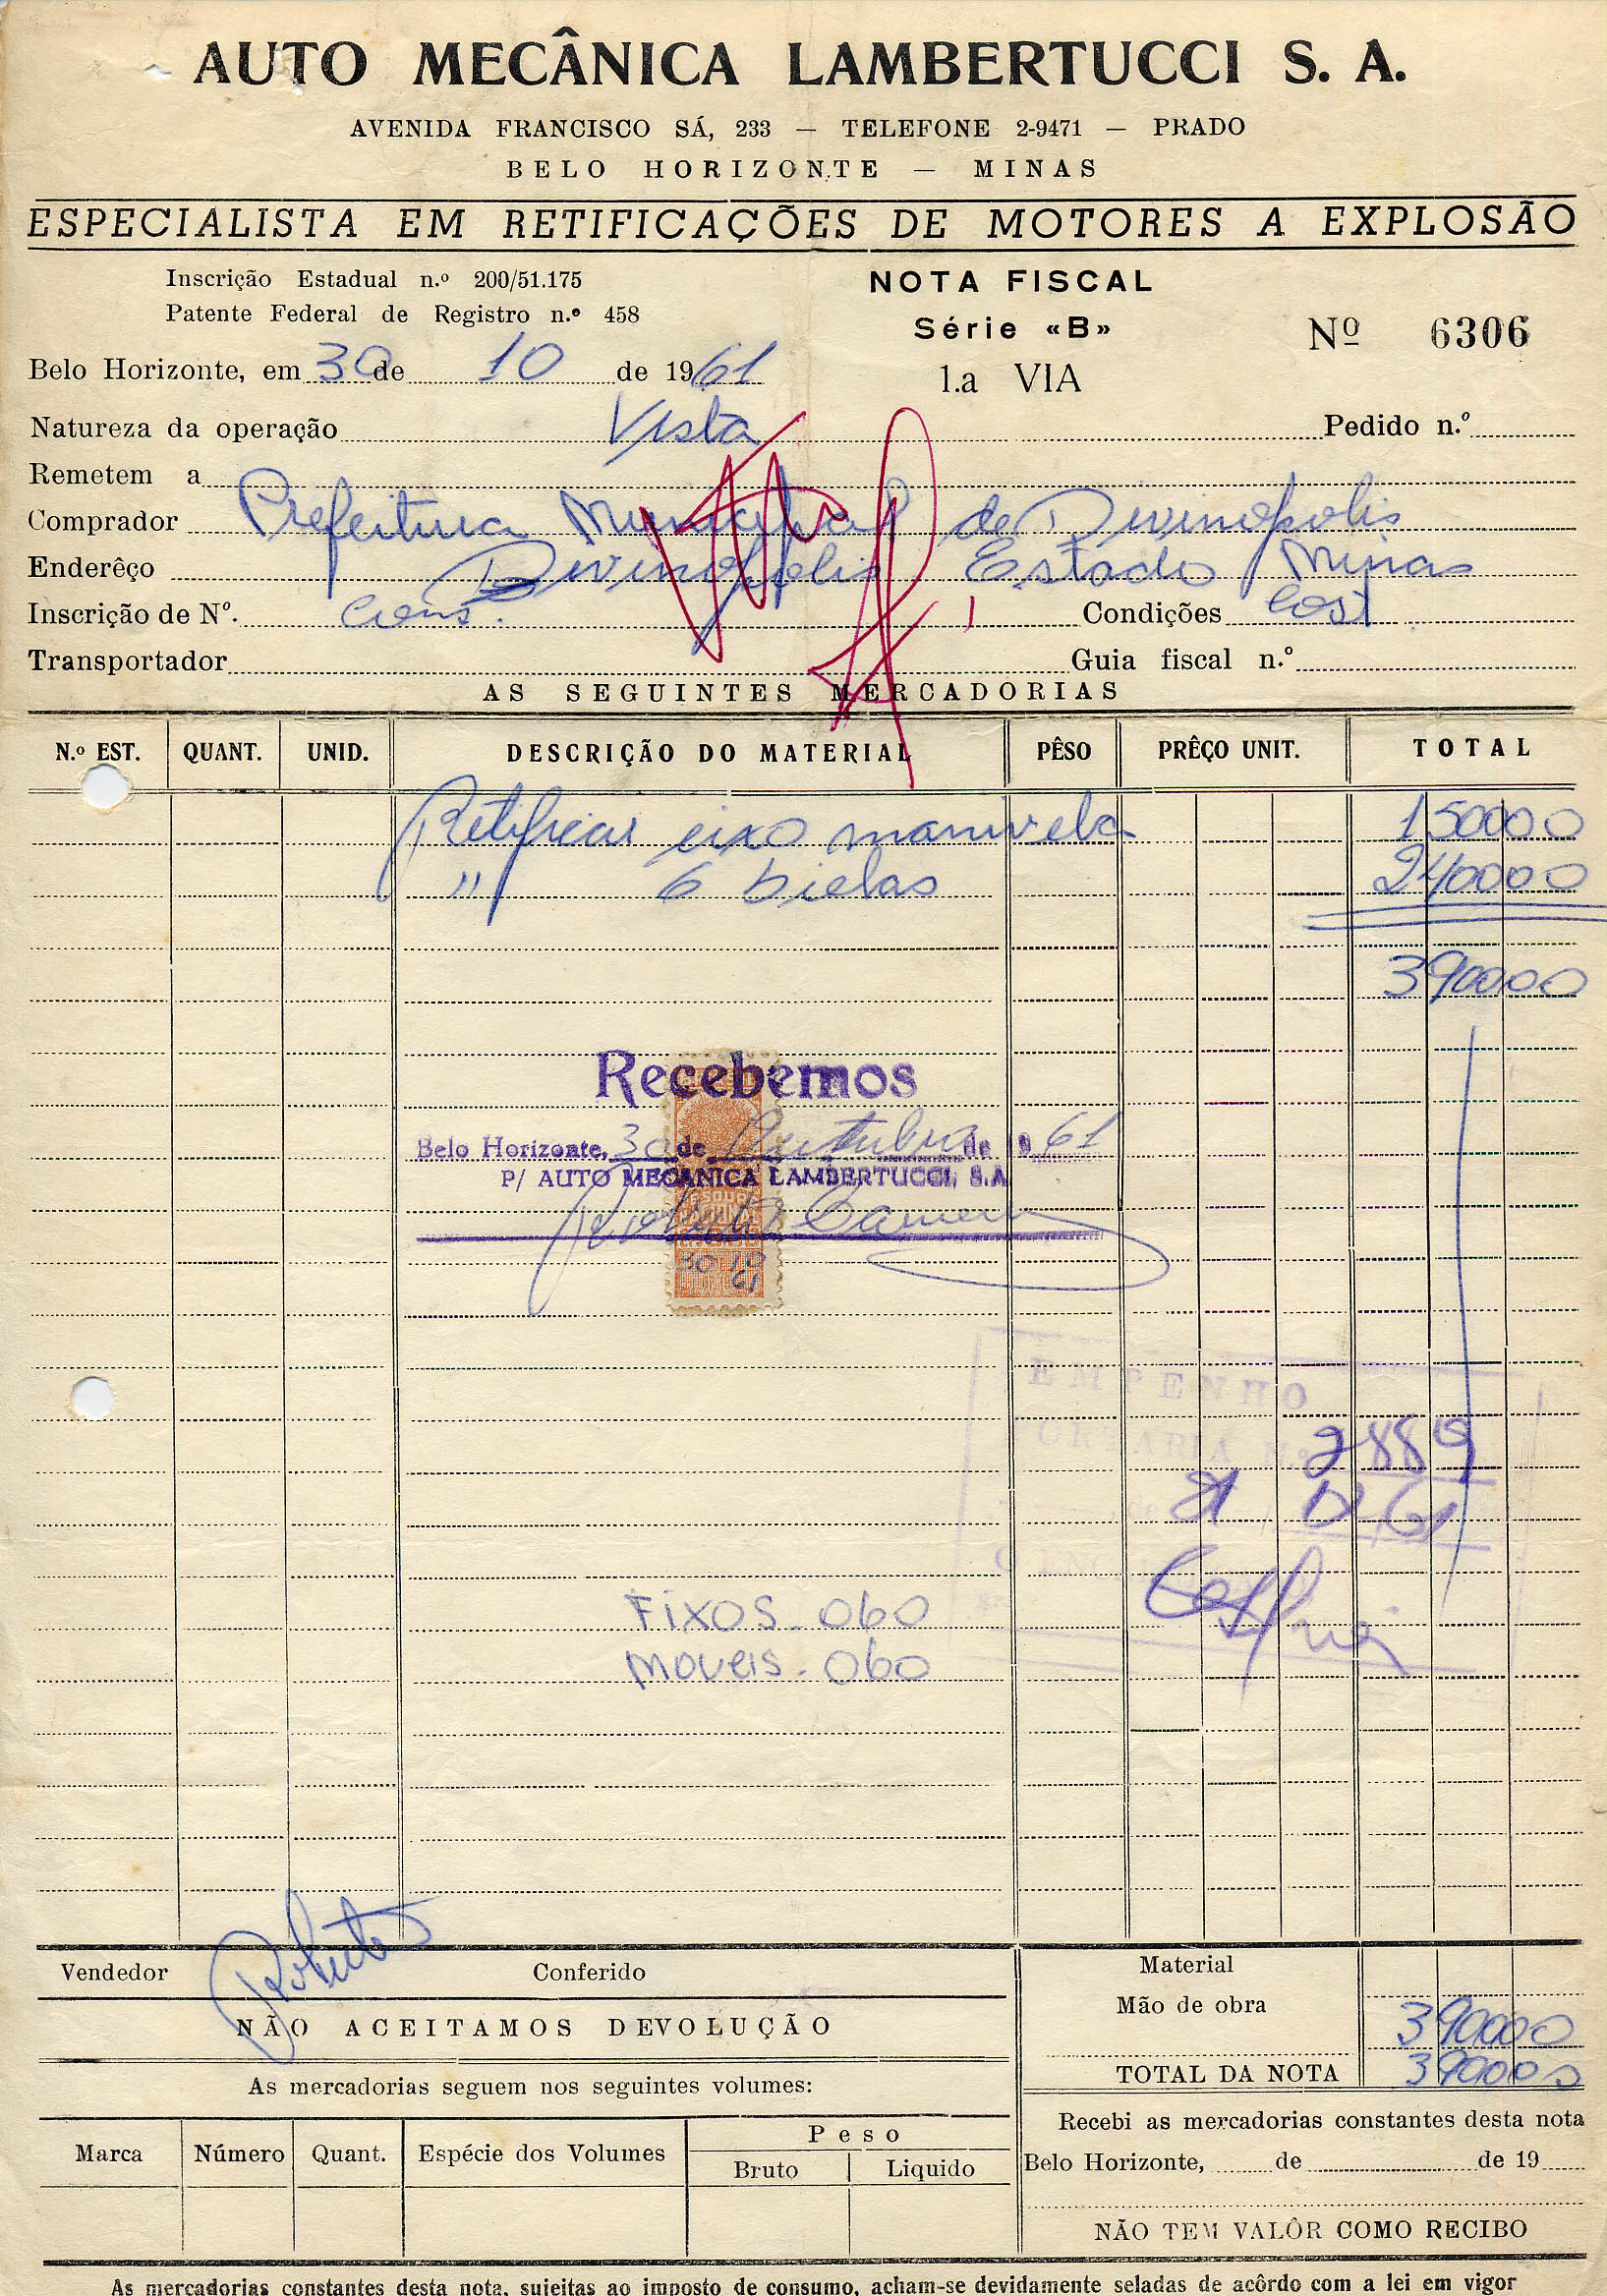 AUTO MECÂNICA LAMBERTUCCI S. A.
AVENIDA FRANCISCO SÁ, 233 — TELEFONE 2-9471 — PRADO
BELO HORIZONTE — MINAS
ESPECIALISTA EM RETIFICAÇÕES DE MOTORES A EXPLOSÃO
Inscrição Estadual n.º 200/51.175
Patente Federal de Registro n.º 458
NOTA FISCAL
Série «B»
1.a VIA
Nº 6306
Belo Horizonte, em 30 de 10 de 1961
Natureza da operação Vista Pedido n.º
Remetem a
Comprador Prefeitura Municipal de Divinopolis
Enderêço Divinopolis Estado Minas
Inscrição de Nº. Cons. Condições
Transportador Guia fiscal n.º
AS SEGUINTES MERCADORIAS
N.º EST. QUANT. UNID. DESCRIÇÃO DO MATERIAL PÊSO PRÊÇO UNIT. TOTAL
Retificar eixo manivela 150000
" 6 bielas 240000
390000
Recebemos
Belo Horizonte, 30 de Outubro de 1961
P/ AUTO MECANICA LAMBERTUCCI, S.A
30 10
61
EMPENHO
PORTARIA N.º 2889
de 21 12/61
FIXOS - 060
MOVEIS - 060
Vendedor Roberto Conferido
NÃO ACEITAMOS DEVOLUÇÃO
As mercadorias seguem nos seguintes volumes:
Marca Número Quant. Espécie dos Volumes Peso
Bruto Liquido
Material
Mão de obra 390000
TOTAL DA NOTA 390000
Recebi as mercadorias constantes desta nota
Belo Horizonte, de de 19
NÃO TEM VALÔR COMO RECIBO
As mercadorias constantes desta nota, sujeitas ao imposto de consumo, acham-se devidamente seladas de acôrdo com a lei em vigor